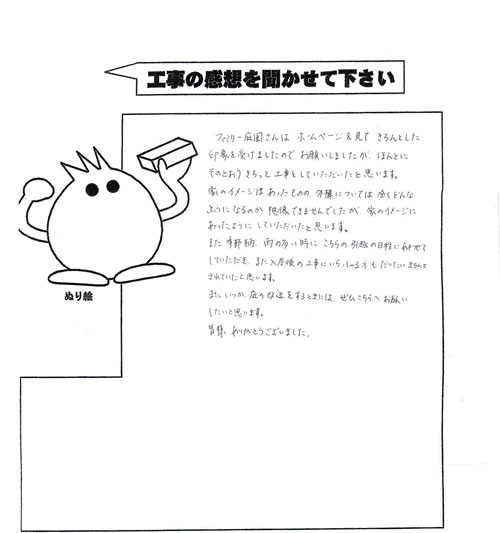 工事の感想を聞かせて下さい
ファミリー庭園さんは ホームページを見て きちんとした
印象を受けましたので お願いしましたが、ほんとに
そのとおり きちっと 工事をしていただいたと思います。
家のイメージは あったものの、外構については 全くどんな
ふうになるのか 想像できませんでしたが、家のイメージに
あったように していただいたと思います。
また 季節柄、雨の多い時に こちらの 引越の日程に あわせて
していただき、また 入居後の 工事に いらっしゃる方も だいたい きちんと
されていたと思います。
また いつか、庭の 改造を するときには、ぜひ こちらへ お願い
したいと思います。
皆様、ありがとうございました。
ぬり絵